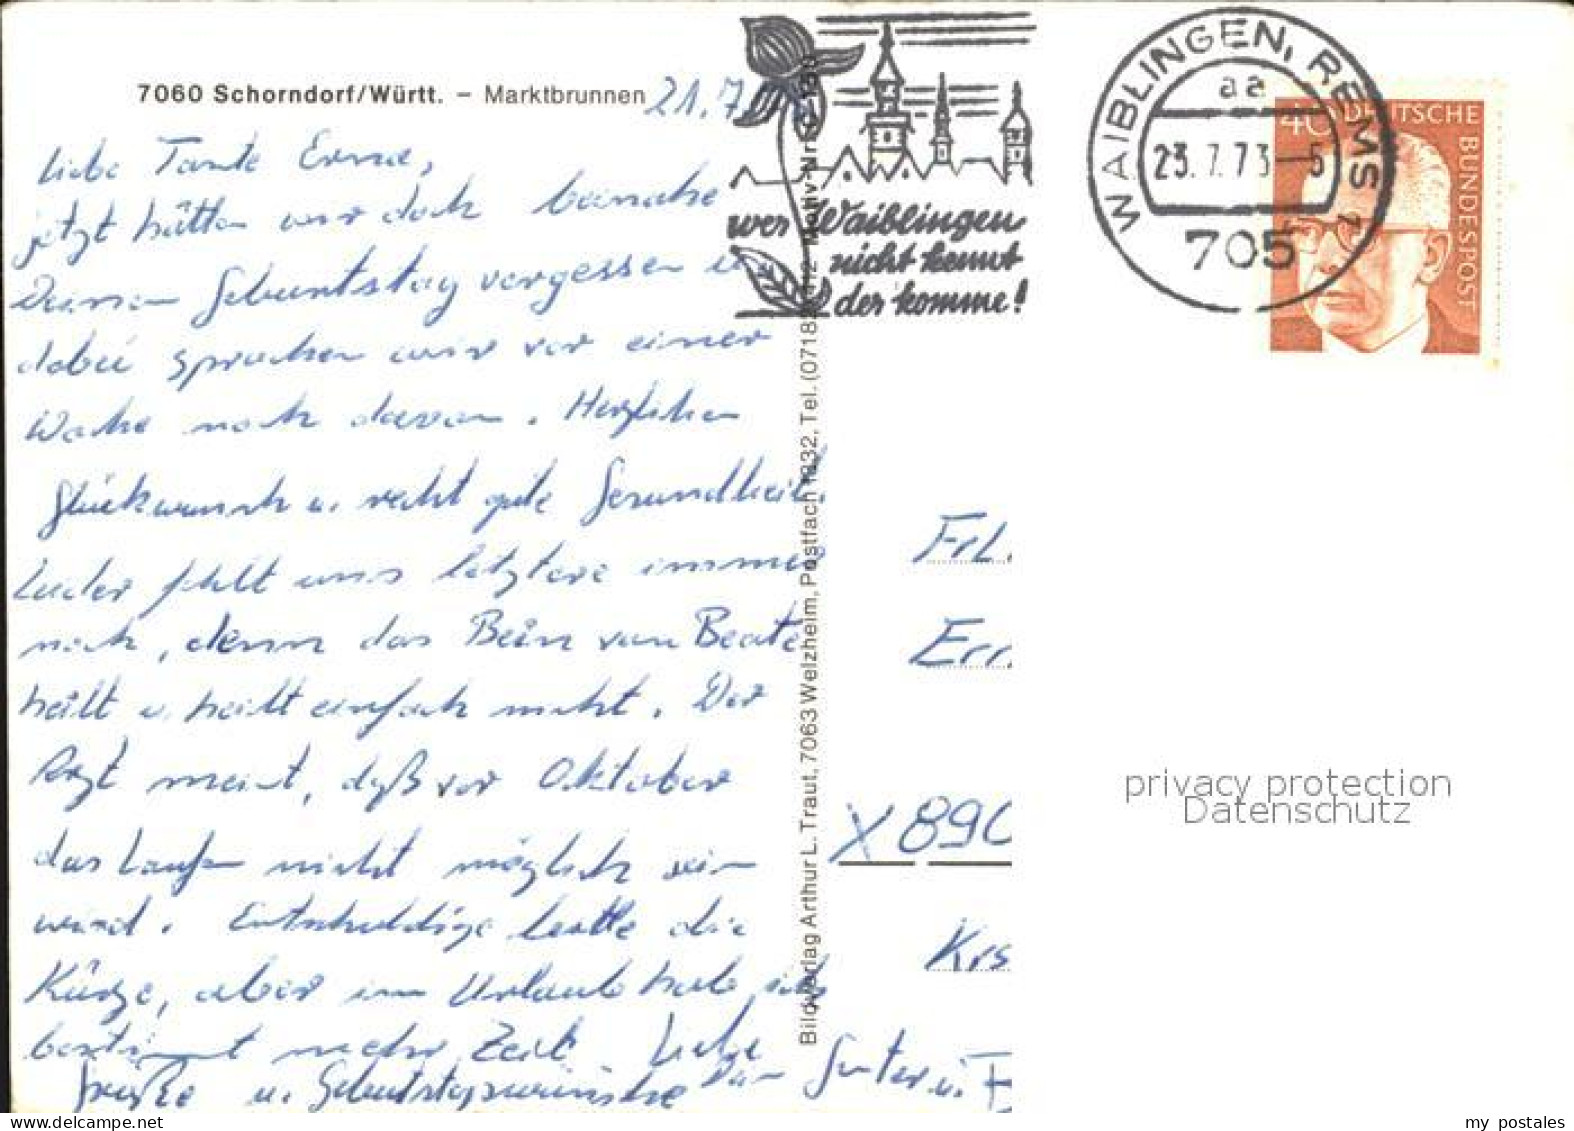 7060 Schorndorf/Württ. – Marktbrunnen
21.7.
Liebe Tante Erna,
jetzt hätten wir doch beinahe
Deinen Geburtstag vergessen u.
dabei sprachen wir vor einer
Woche noch davon. Herzlichen
Glückwunsch u. recht gute Gesundheit!
Leider fehlt uns letztere immer
noch, denn das Bein von Beate
heilt u. heilt einfach nicht. Der
Arzt meint, daß vor Oktober
das Laufen nicht möglich sein
wird. Entschuldige bitte die
Kürze, aber im Urlaub hab ich
bestimmt mehr Zeit. Liebe
Grüße u. Geburtstagswünsche von Gunter u.
wer Waiblingen
nicht kennt
der komme!
WAIBLINGEN, REMS 1
aa
23.7.73-5
705
40 DEUTSCHE
BUNDESPOST
Bildverlag Arthur L. Traut, 7063 Welzheim, Postfach 1332, Tel. (07182)
Frl.
X 890
privacy protection
Datenschutz
my postales
www.delcampe.net